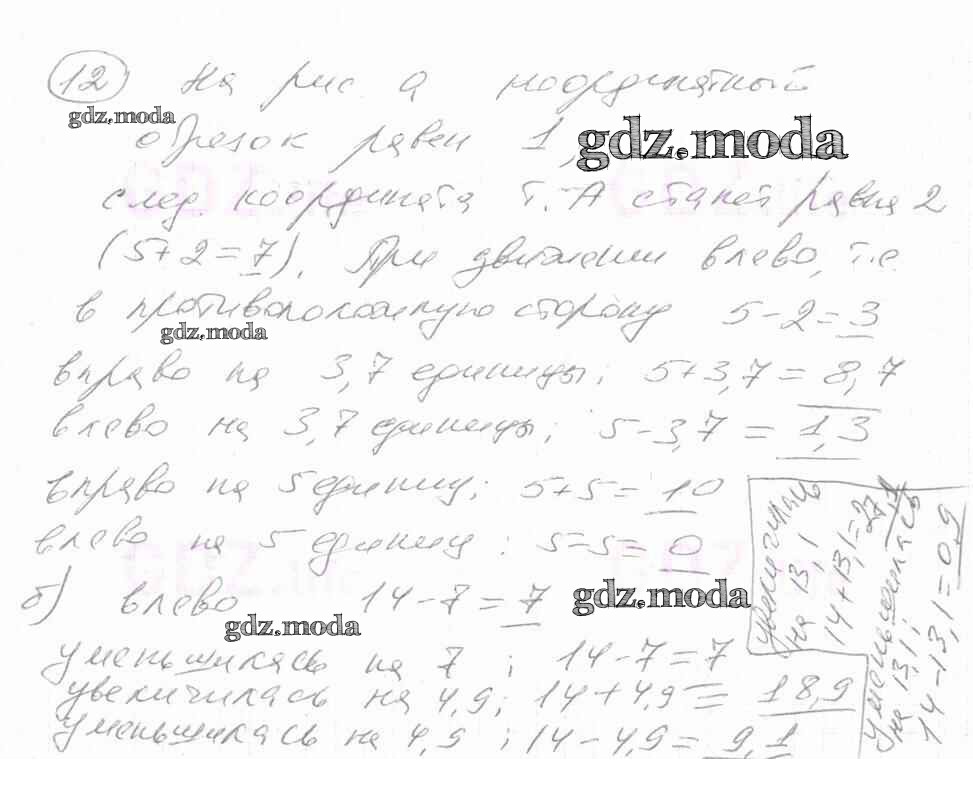 12 На рис. а координатный
gdz.moda
отрезок равен 1,
gdz.moda
след. координата т. А станет равна 2
(5+2=7). При движении влево, т.е.
в противоположную сторону 5-2=3
gdz.moda
вправо на 3,7 единицы; 5+3,7=8,7
влево на 3,7 единицы; 5-3,7=1,3
вправо на 5 единиц; 5+5=10
влево на 5 единиц: 5-5=0
б) влево 14-7=7
gdz.moda
gdz.moda
уменьшилась на 7; 14-7=7
увеличилась на 4,9; 14+4,9=18,9
уменьшилась на 4,9; 14-4,9=9,1
увеличилась
на 13,1
14+13,1=27,1
уменьшилась
на 13,1;
14-13,1=0,9